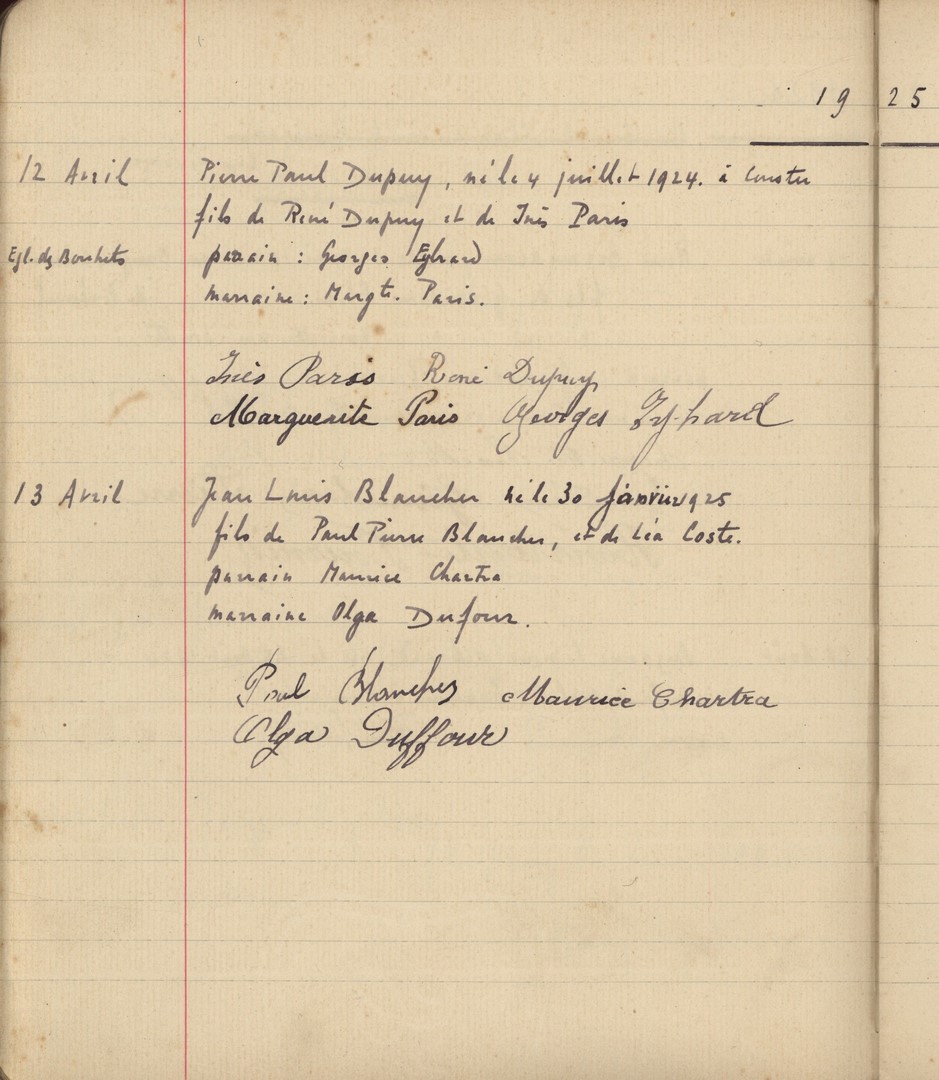 19 25
12 Avril Pierre Paul Dupuy, né le 4 juillet 1924. à Conster
fils de René Dupuy et de Inès Paris
Egl. des parrain : Georges
marraine : Margte. Paris.
Inès Paris René Dupuy
Marguerite Paris Georges
13 Avril Jean Louis Blancher né le 30 janvier 1925
fils de Paul Pierre Blancher, et de Léa Coste.
parrain Maurice Chartra
marraine Olga Dufour.
Paul Blancher Maurice Chartra
Olga Duffour